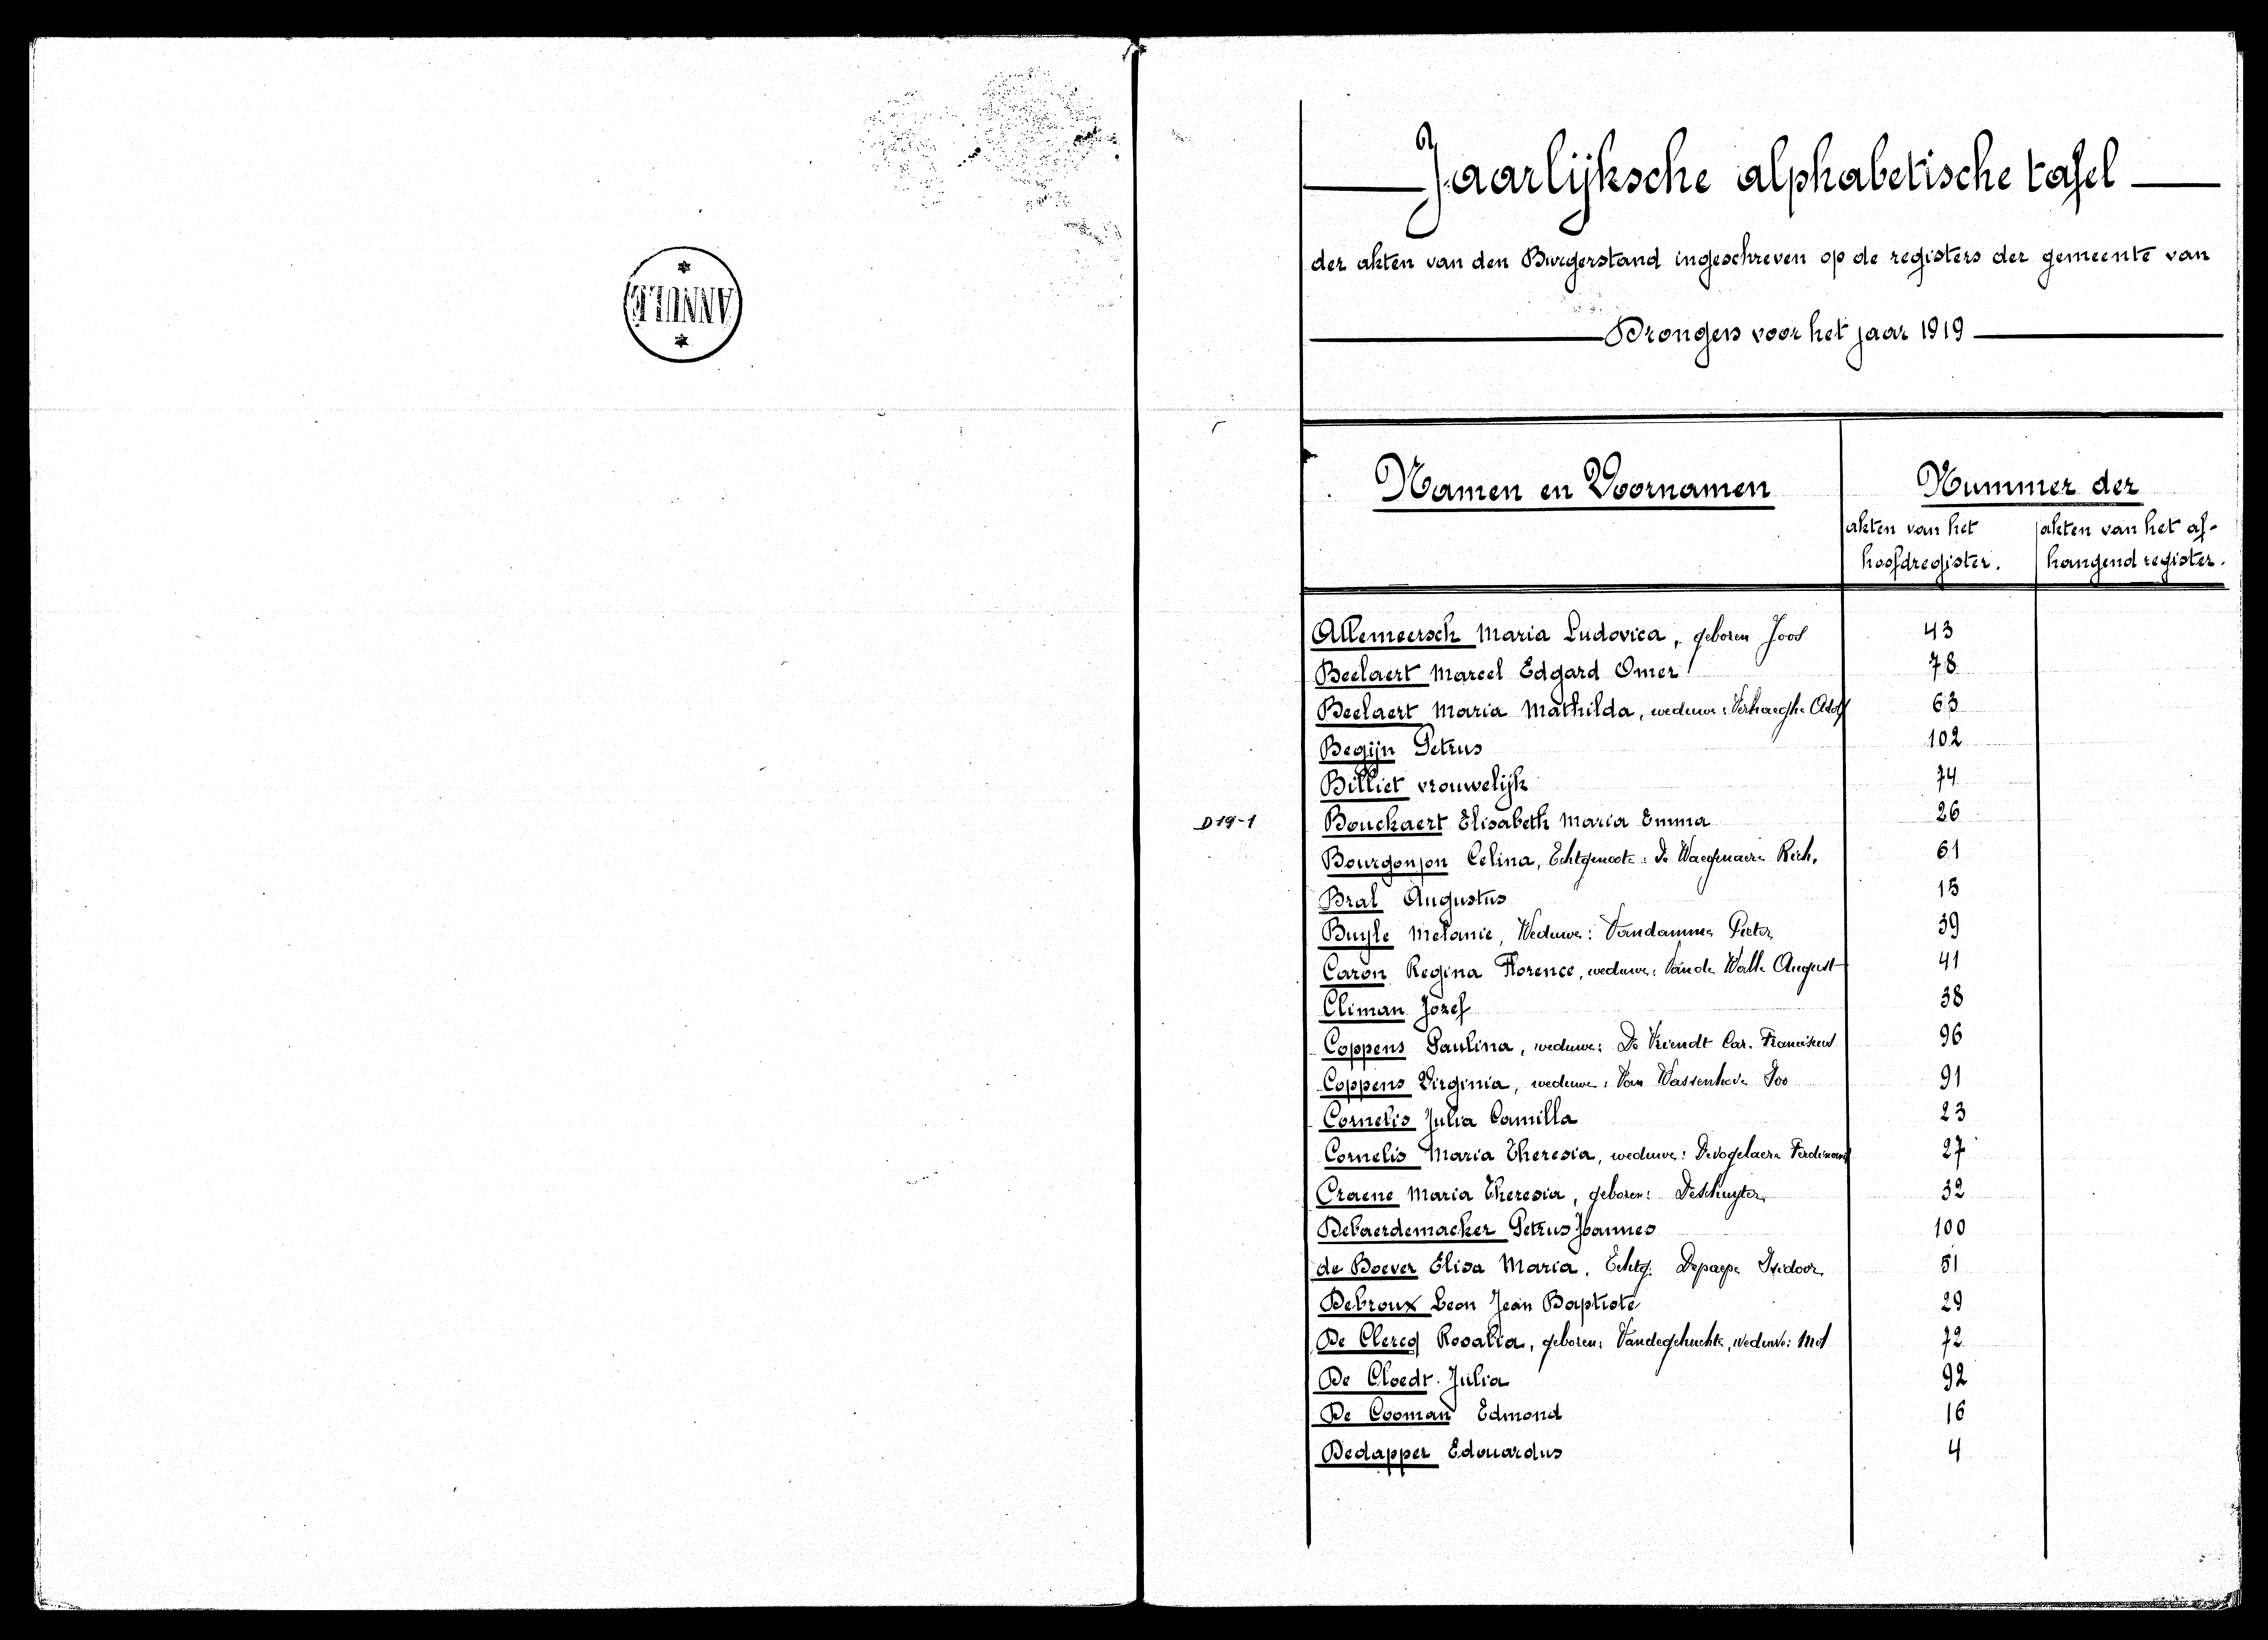 ANNULÉ
Jaarlijksche alphabetische tafel
der akten van den Burgerstand ingeschreven op de registers der gemeente van
Drongen voor het jaar 1919
Namen en Voornamen
Nummer der
akten van het hoofdregister.
akten van het afhangend register.
Allemeersch Maria Ludovica, geboren Joos 43
Beelaert Marcel Edgard Omer 78
Beelaert Maria Mathilda, weduwe: Verhaeghe Adolf 63
Begijn Petrus 102
Billiet vrouwelijk 74
D19-1 Bouckaert Elisabeth Maria Emma 26
Bourgonjon Celina, Echtgenoote: De Waegenaere Rich. 61
Bral Augustus 15
Buyle Melanie, Weduwe: Vandamme Pieter 39
Caron Regina Florence, weduwe: Vande Walle August 41
Climan Jozef 38
Coppens Paulina, weduwe: De Vriendt Car. Franciscus 96
Coppens Virginia, weduwe: Van Wassenhove Ivo 91
Cornelis Julia Camilla 23
Cornelis Maria Theresia, weduwe: Devogelaere Ferdinand 27
Craene Maria Theresia, geboren: Deschuyter 32
Debaerdemacker Petrus Joannes 100
de Boever Elisa Maria. Echtg: Depaepe Isidoor 51
Debroux Leon Jean Baptiste 29
De Clercq Rosalia, geboren: Vandegehuchte, weduwe: Mol 72
De Cloedt Julia 92
De Cooman Edmond 16
Dedapper Edouardus 4